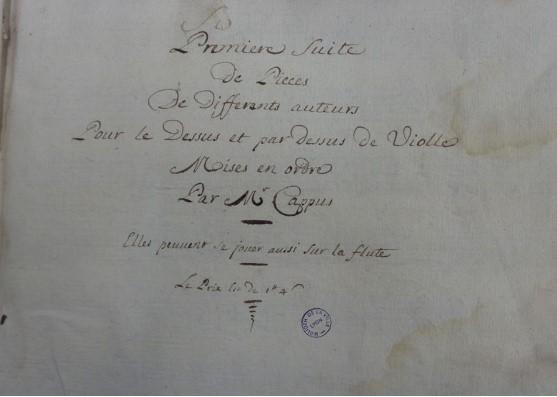 Premiere Suite
de Pieces
De Differents auteurs
Pour le Dessus et par dessus de Violle
Mises en ordre
Par Mr Cappus
Elles peuvent se jouer aussi sur la flute
Le Prix est de
LYON